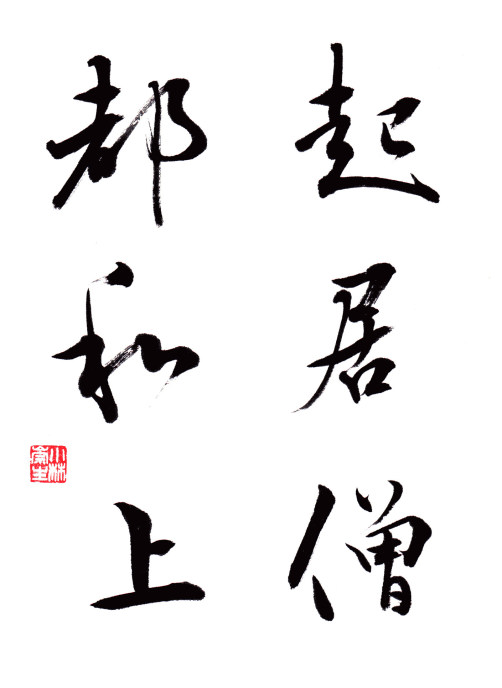 起居僧
都和上
小林